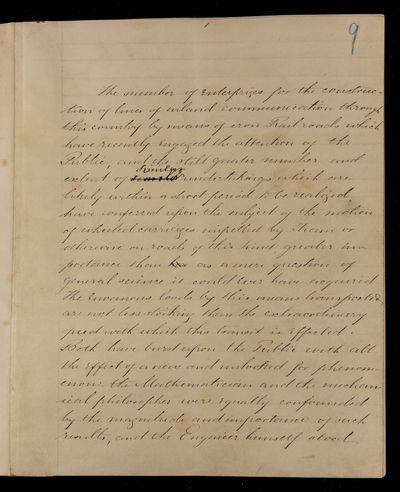 9
The number of enterprizes for the construc-
tion of lines of inland communication through
this country by means of iron Rail roads which
have recently engaged the attention of the
Public, and the still greater number and
similar
extent of undertakings which are
likely within a short period to be realized,
have conferred upon the subject of the motion
of wheeled carriages impelled by steam or
otherwise on roads of this kind greater im-
portance than as a mere question of
general science it could ever have acquired
The enormous loads by this means transported
are not less striking than the extraordinary
speed with which this transit is effected.
Both have burst upon the Public with all
the effect of a new and unlooked for phenom-
enon: the Mathematician and the mechan-
ical philosopher were equally confounded
by the magnitude and importance of such
results, and the Engineer himself stood